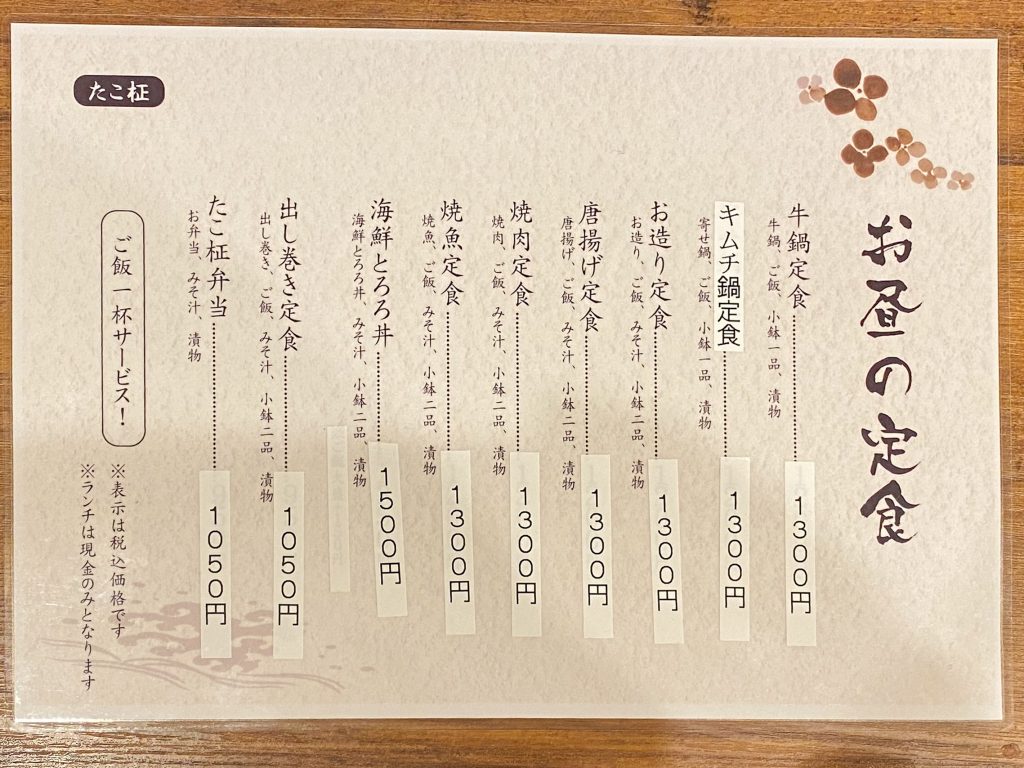 お昼の定食
牛鍋定食 1300円
牛鍋、ご飯、小鉢一品、漬物
キムチ鍋定食 1300円
寄せ鍋、ご飯、小鉢一品、漬物
お造り定食 1300円
お造り、ご飯、みそ汁、小鉢二品、漬物
唐揚げ定食 1300円
唐揚げ、ご飯、みそ汁、小鉢二品、漬物
焼肉定食 1300円
焼肉、ご飯、みそ汁、小鉢二品、漬物
焼魚定食 1300円
焼魚、ご飯、みそ汁、小鉢二品、漬物
海鮮とろろ丼 1500円
海鮮とろろ丼、みそ汁、小鉢二品、漬物
出し巻き定食 1050円
出し巻き、ご飯、みそ汁、小鉢二品、漬物
たこ柾弁当 1050円
お弁当、みそ汁、漬物
ご飯一杯サービス！
※表示は税込価格です
※ランチは現金のみとなります
たこ柾